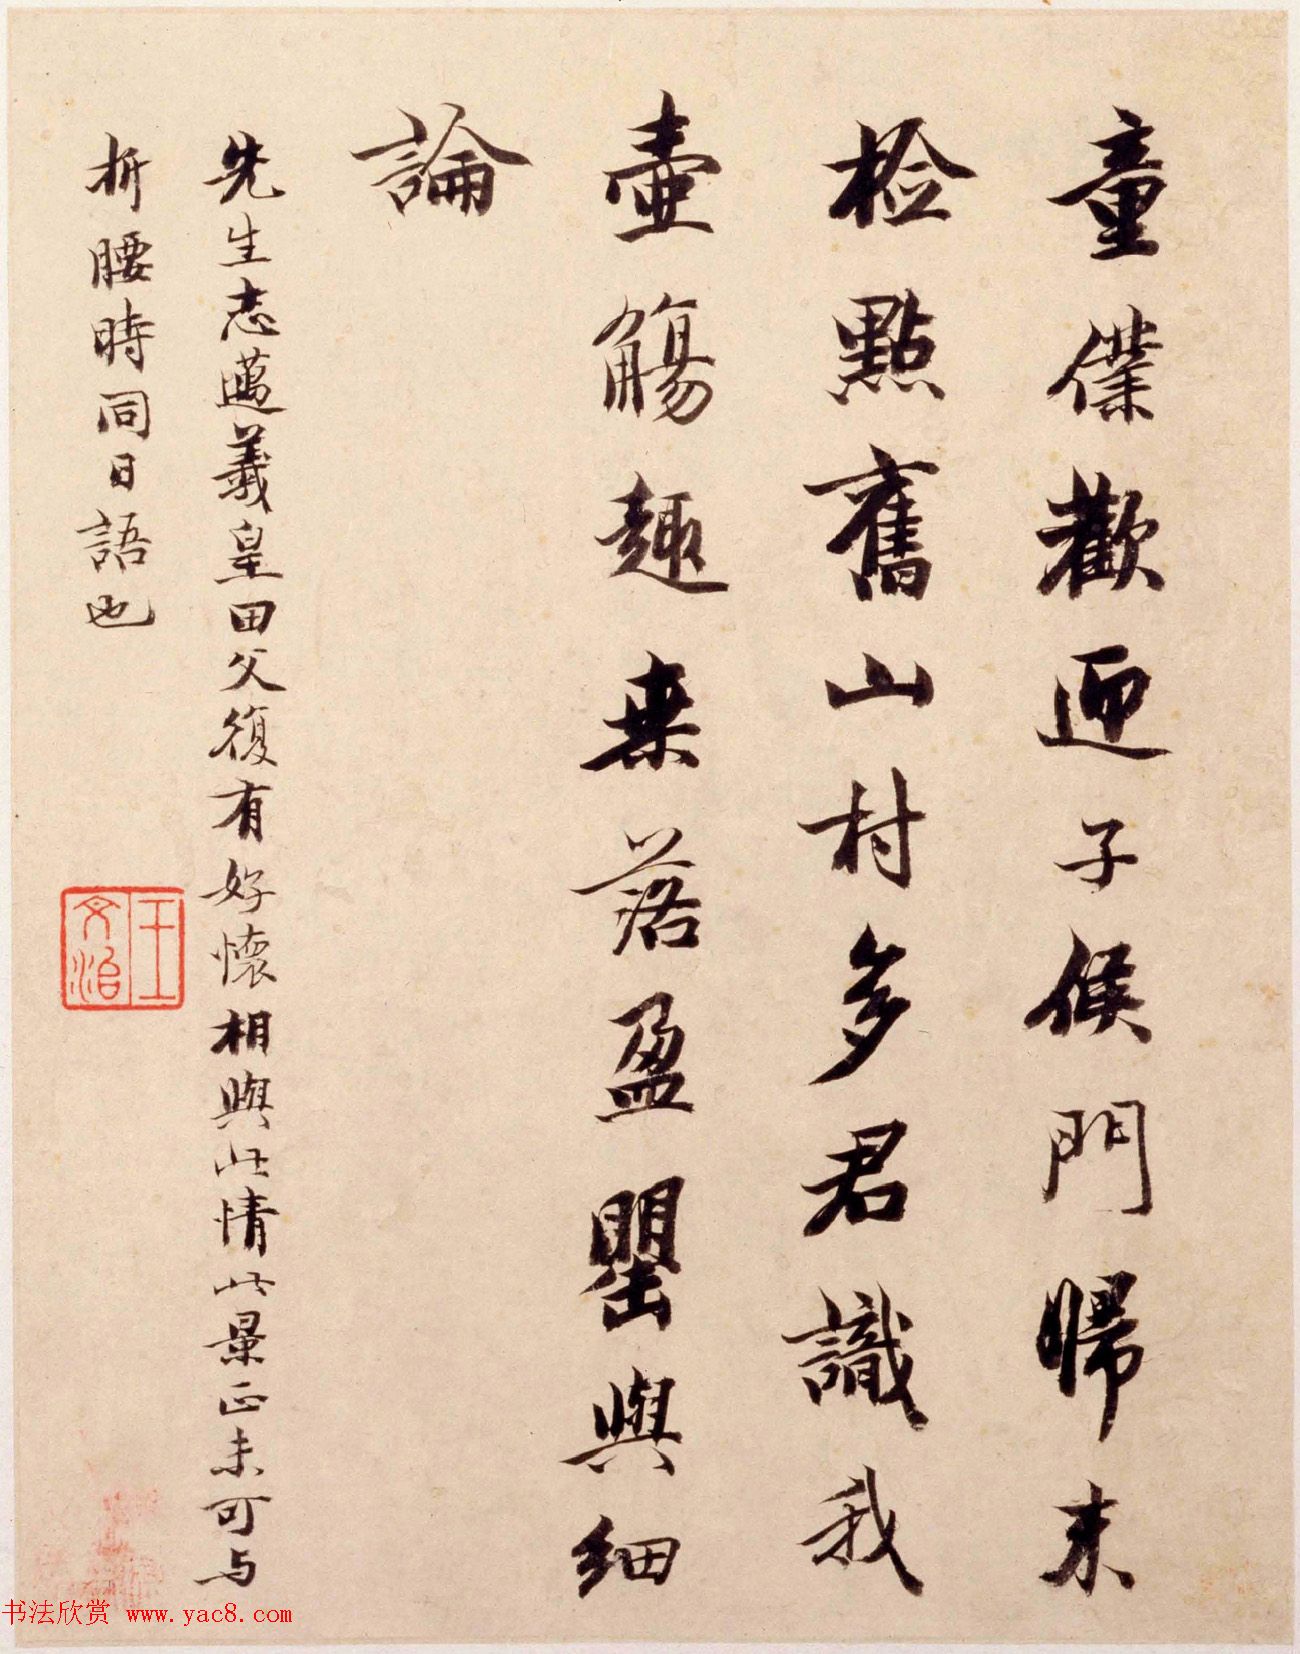 童僕歡迎子候門歸来
检點舊山村多君識我
壺觴趣桒落盈罍與細
論
先生志邁羲皇田父復有好懷相與此情此景正未可与
折腰時同日語也
王文治
书法欣赏 www.yac8.com